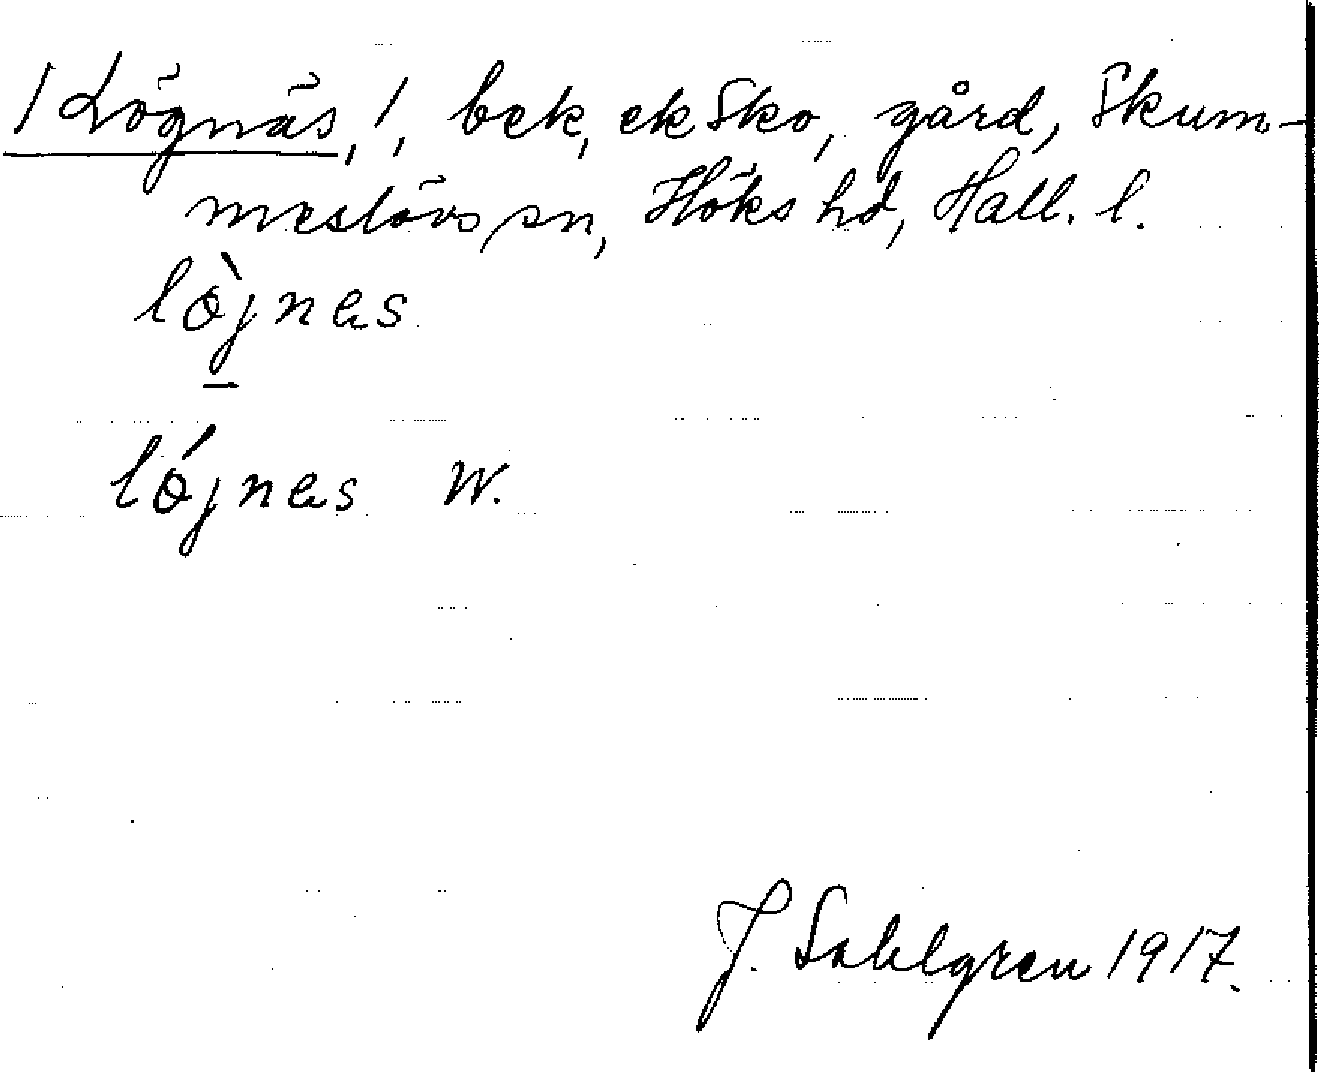 /Lögnäs, /, bek, ek Sko, gård, Skum-
meslövs sn, Höks hd, Hall. l.
lo̊̀jnas
lójnas W.
J. Sahlgren 1917.